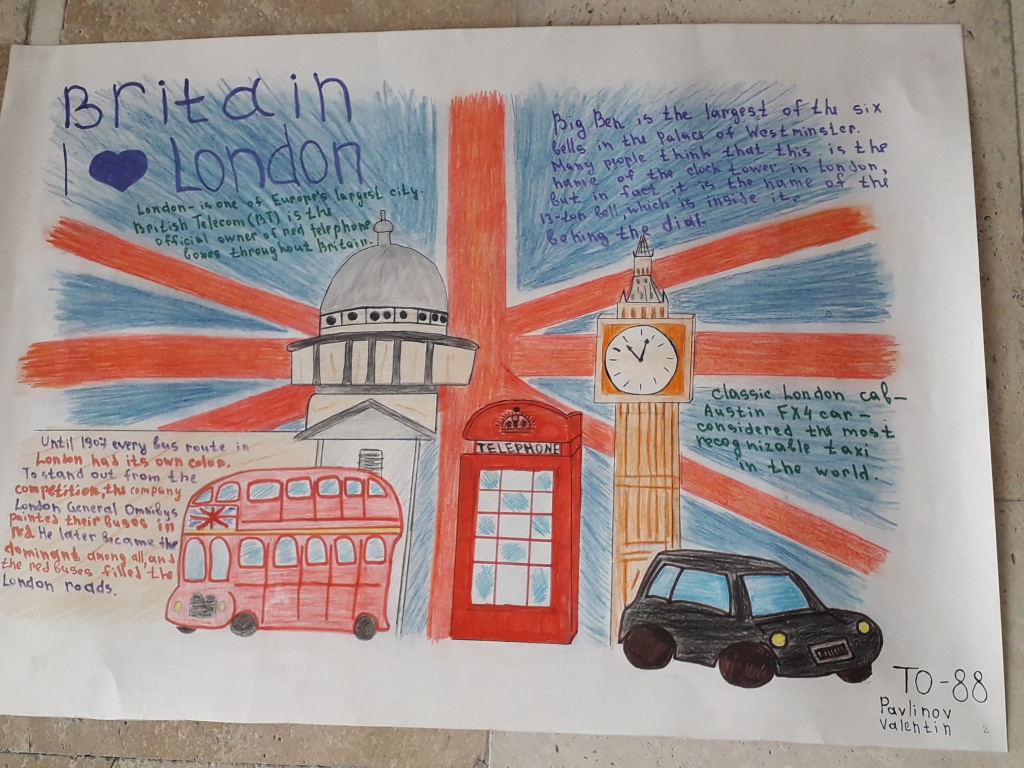 Britain
I ♥ London
London- is one of Europe's largest city.
British Telecom (BT) is the
official owner of red telephone
boxes throughout Britain.
Big Ben is the largest of the six
bells in the Palace of Westminster.
Many people think that this is the
name of the clock tower in London,
but in fact it is the name of the
13-ton bell, which is inside it,
behing the dial.
classic London cab-
Austin FX4 car-
considered the most
recognizable taxi
in the world.
Until 1907 every bus route in
London had its own color.
To stand out from the
competition, the company
London General Omnibys
painted their buses in
red. He later became the
dominant among all and
the red buses filled the
London roads.
TELEPHONE
TO-88
Pavlinov
Valentin
2